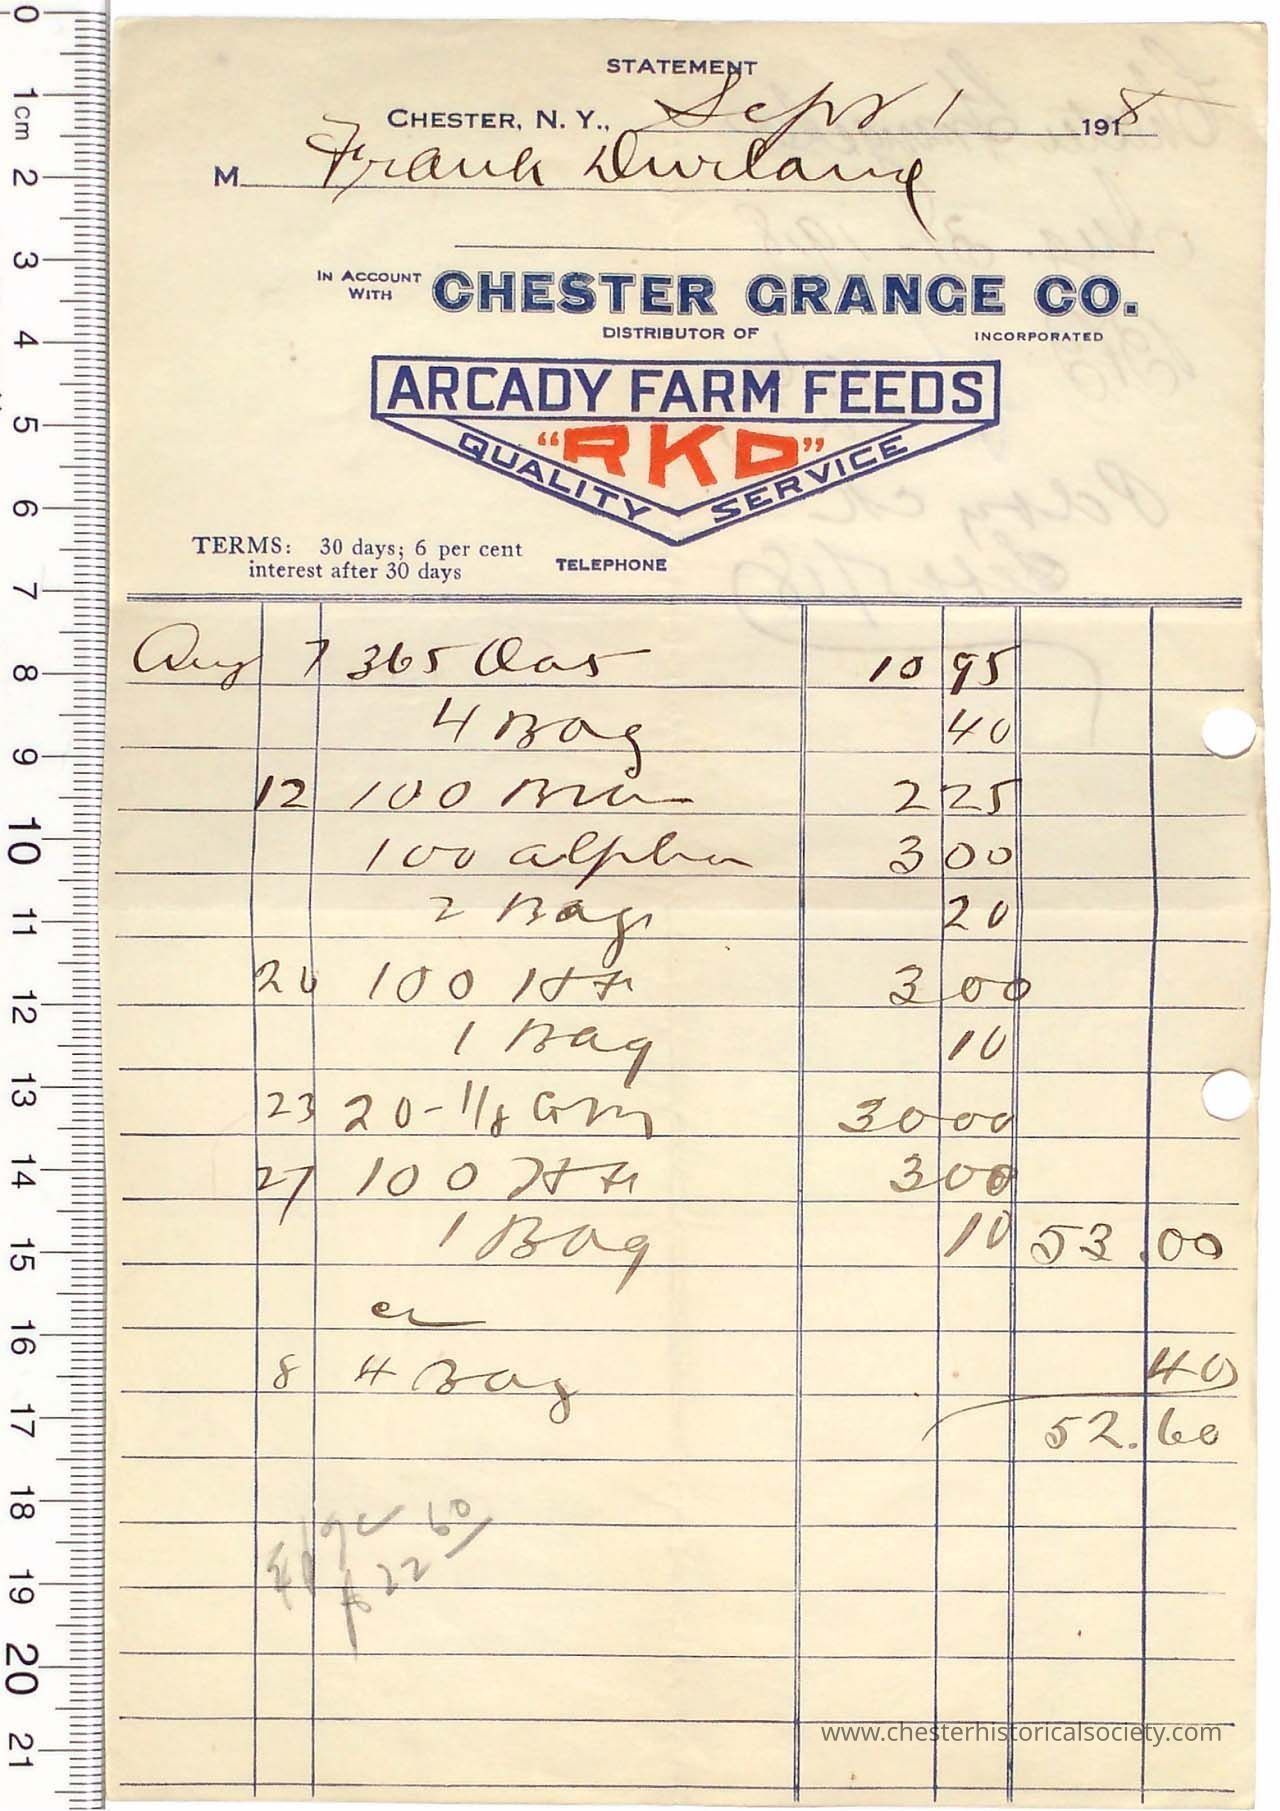 STATEMENT
CHESTER, N. Y., Sept 1 1918
M Frank Durland
IN ACCOUNT WITH CHESTER GRANGE CO.
DISTRIBUTOR OF INCORPORATED
ARCADY FARM FEEDS
"RKD"
QUALITY SERVICE
TERMS: 30 days; 6 per cent
interest after 30 days
TELEPHONE
Aug 7 365 Oats 10 95
4 Bag 40
12 100 Bran 2 25
100 alpha 3 00
2 Bags 20
20 100 HF 3 00
1 Bag 10
23 20-1/8 Gm 30 00
27 100 HF 3 00
1 Bag 10 53.00
cr
8 4 Bag 40
52.60
60
22
www.chesterhistoricalsociety.com
0
1cm
2
3
4
5
6
7
8
9
10
11
12
13
14
15
16
17
18
19
20
21